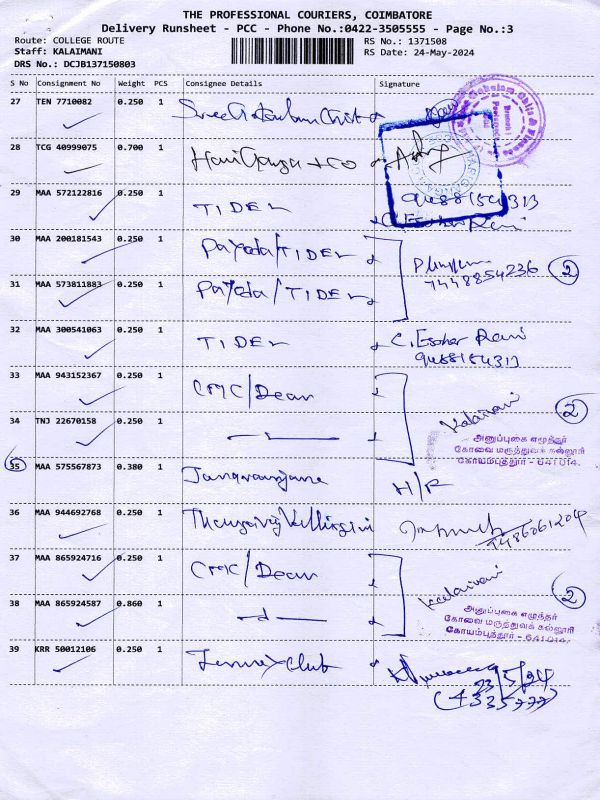 THE PROFESSIONAL COURIERS, COIMBATORE
Delivery Runsheet - PCC - Phone No.:0422-3505555 - Page No.:3
Route: COLLEGE ROUTE RS No.: 1371508
Staff: KALAIMANI RS Date: 24-May-2024
DRS No.: DCJB137150803
S No Consignment No Weight PCS Consignee Details Signature
27 TEN 7710082 0.250 1
28 TCG 40999075 0.700 1
29 MAA 572122816 0.250 1 TIDEL 9488154313
C. Esther Rani
30 MAA 200181543 0.250 1 Payoda/TIDEL
7448854236 2
31 MAA 573811883 0.250 1 Payoda/TIDEL
32 MAA 300541063 0.250 1 TIDEL C. Esther Rani
9488154313
33 MAA 943152367 0.250 1 CMC/Dean Kalaivani 2
34 TNJ 22670158 0.250 1
அனுப்புகை எழுத்தர்
கோவை மருத்துவக் கல்லூரி
கோயம்புத்தூர் - 641 014.
35 MAA 575567873 0.380 1 H/R
36 MAA 944692768 0.250 1
7486061204
37 MAA 865924716 0.250 1 CMC/Dean Kalaivani 2
38 MAA 865924587 0.860 1
அனுப்புகை எழுத்தர்
கோவை மருத்துவக் கல்லூரி
கோயம்புத்தூர் - 641 014.
39 KRR 50012106 0.250 1 Club
23/5/24
(4335777)